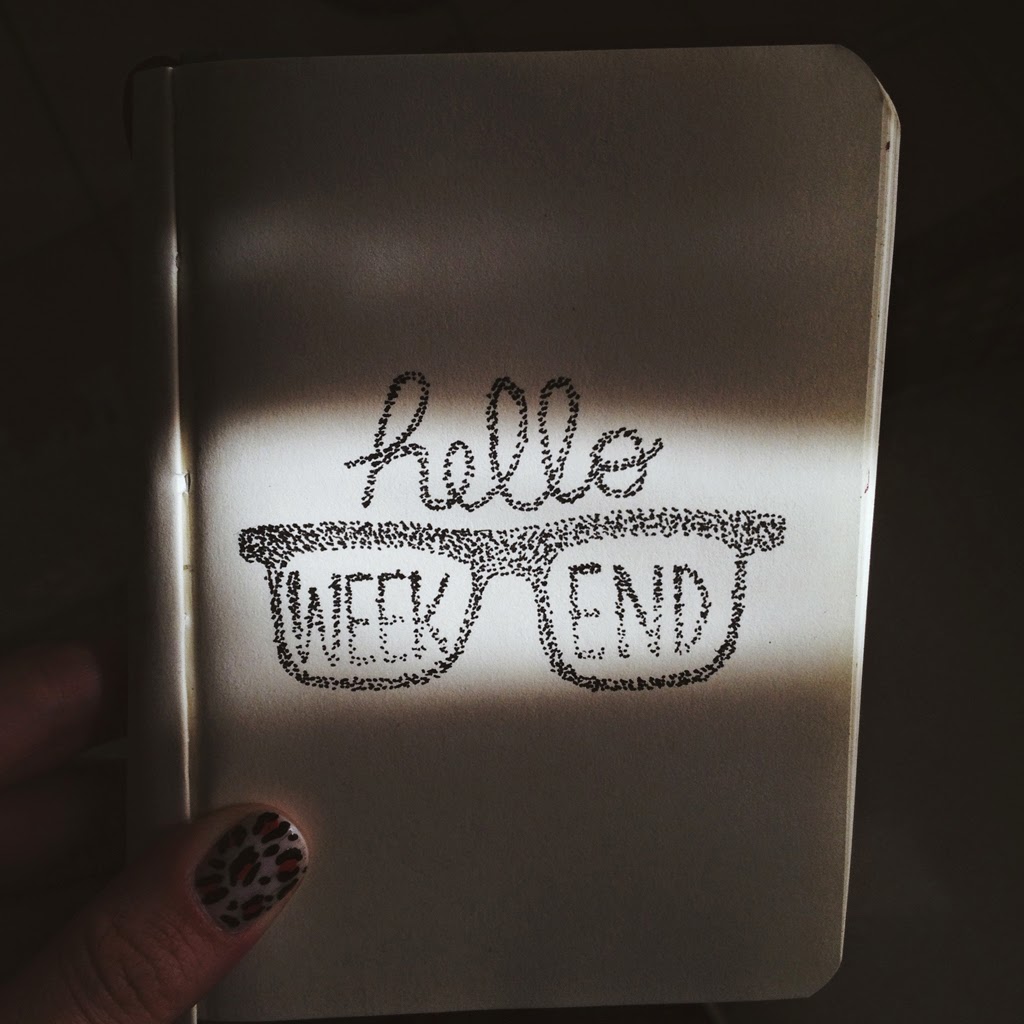 hello
WEEK END